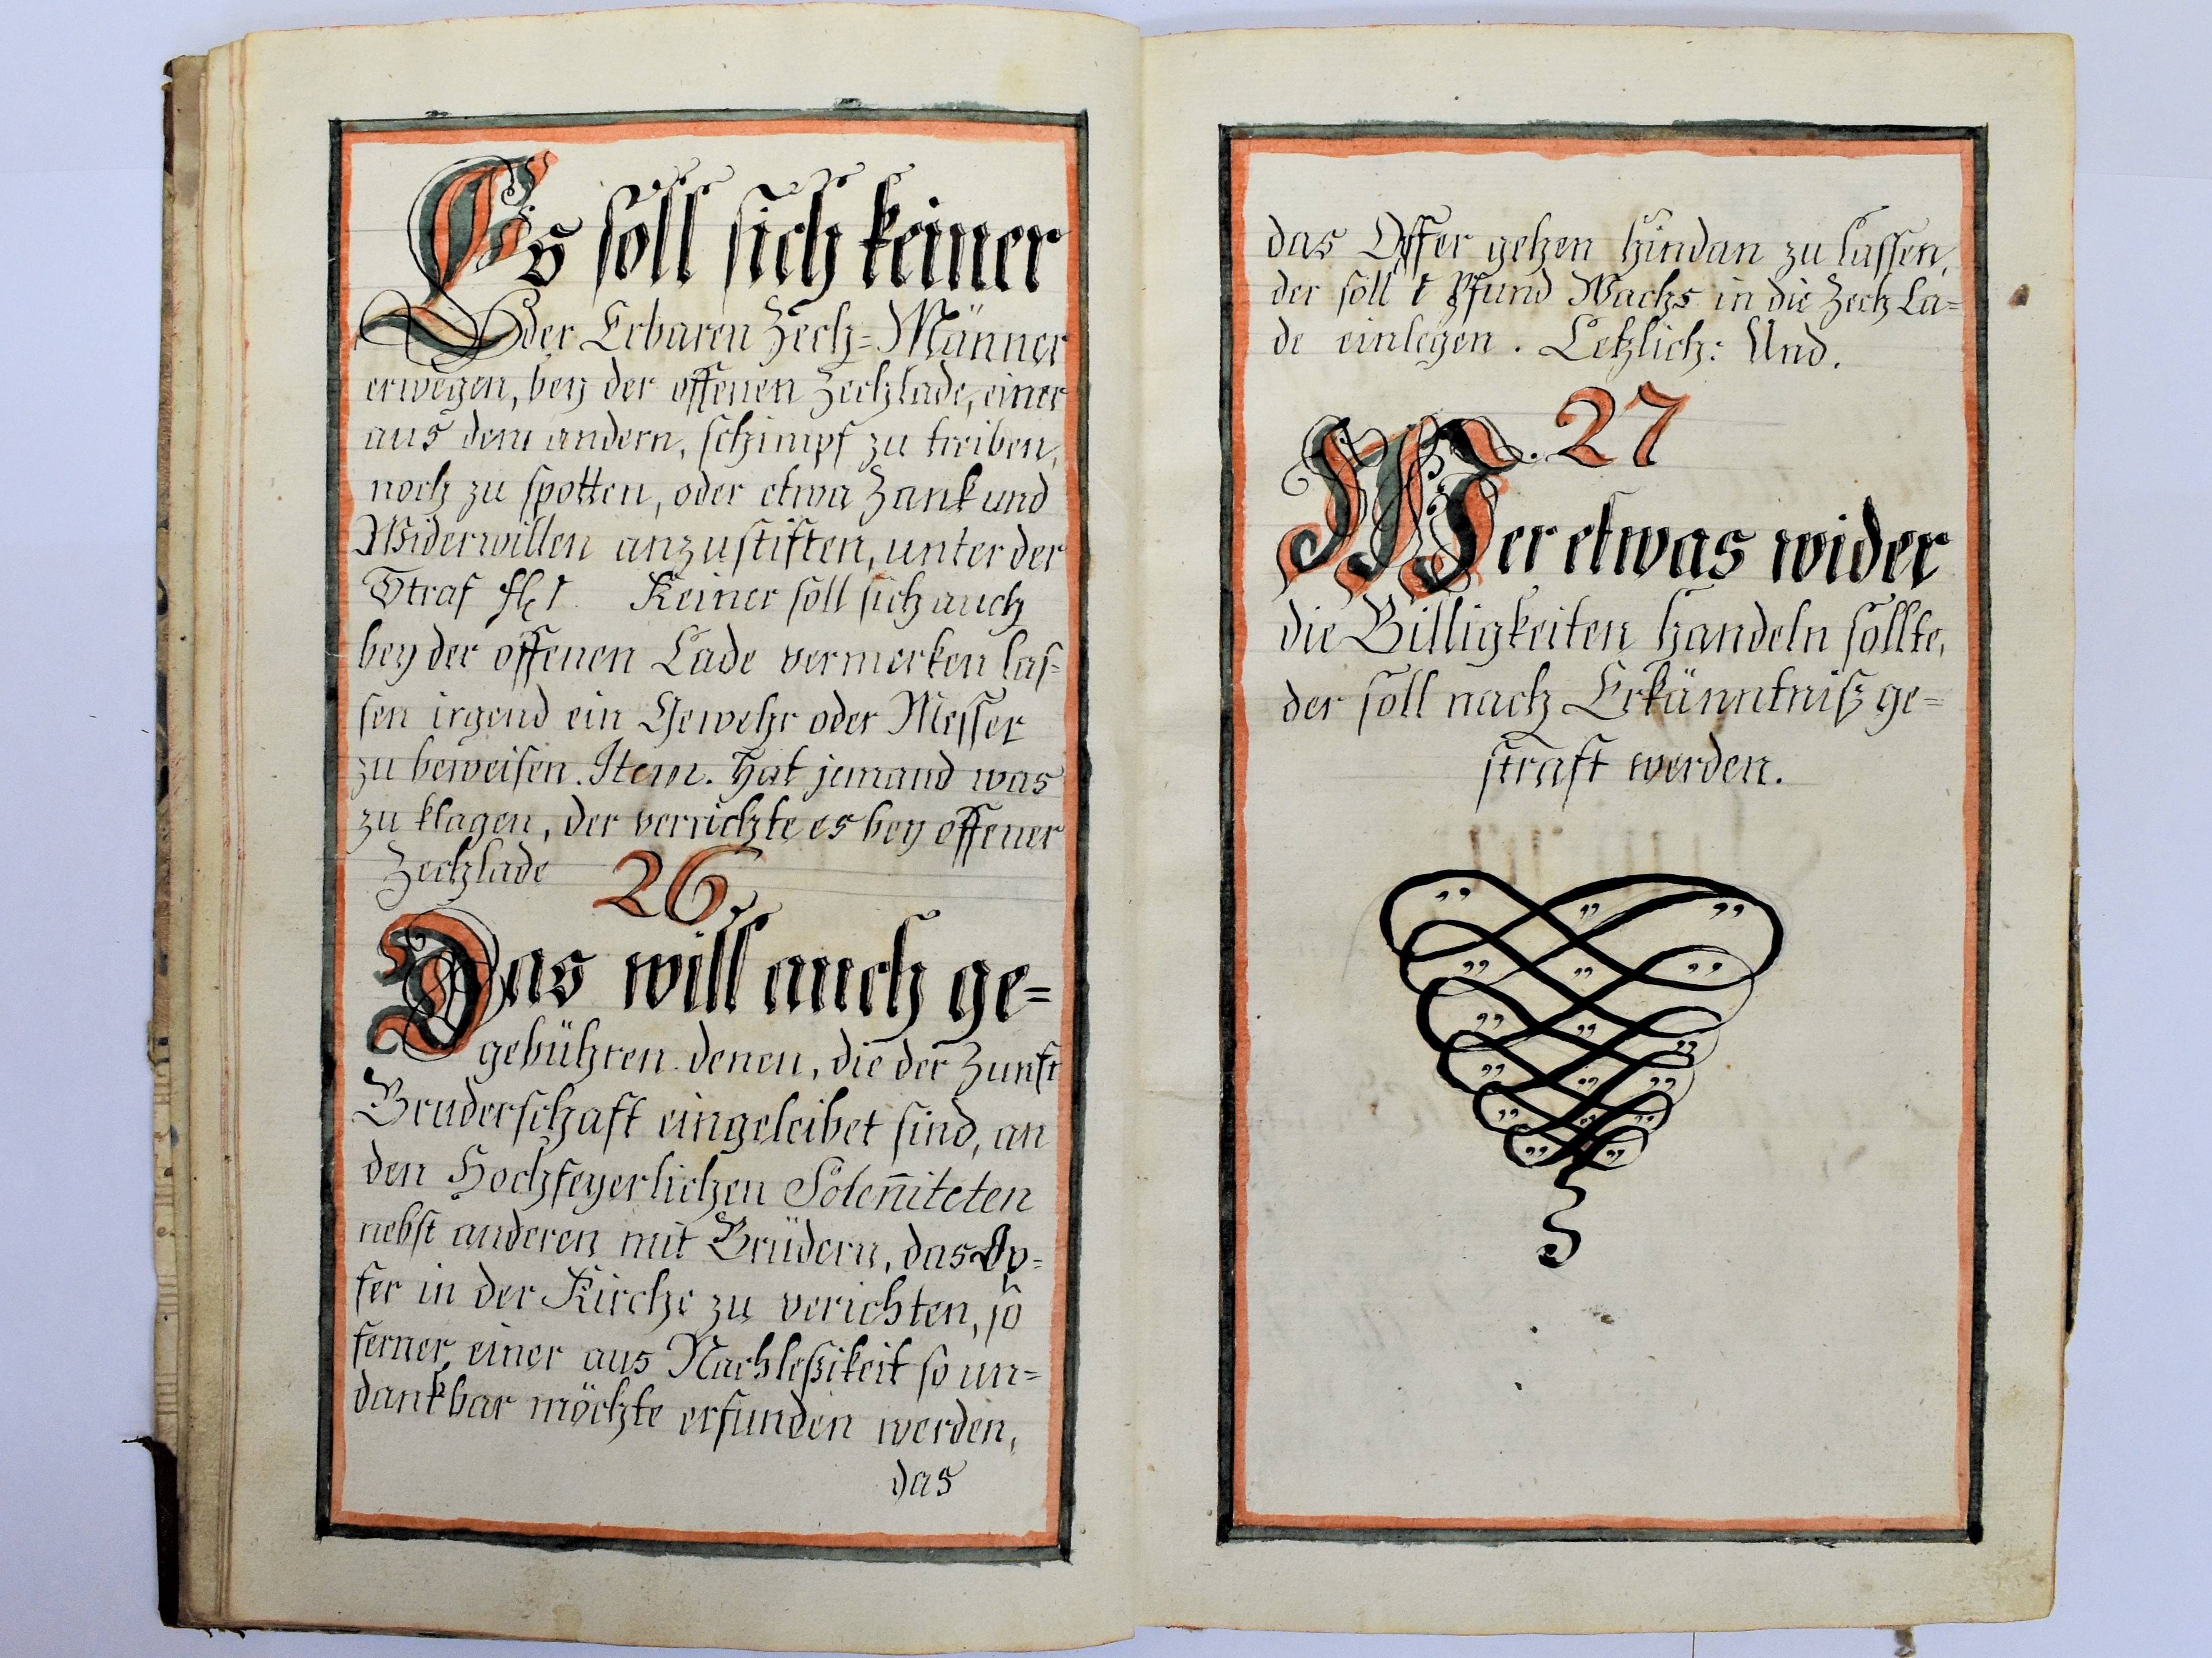 Es soll sich keiner
der Erbaren Zech=Männer
erwegen, bey der offenen Zechlade, einer
aus dem andern, schimpf zu treiben,
noch zu spotten, oder etwa Zank und
Widerwillen anzustiften, unter der
Straf fl 1. Keiner soll sich auch
bey der offenen Lade vermerken las=
sen irgend ein Gewehr oder Messer
zu beweisen. Item. Hat jemand was
zu klagen, der verrichte es bey offener
Zechlade
26.
Das will auch ge=
gebühren denen, die der Zunft
Bruderschaft eingeleibet sind, an
den Hochfeyerlichen Solen̄iteten
nebst anderen mit Brüdern, das Op=
fer in der Kirche zu verichten, so
ferner einer aus Nachleßikeit so un=
dankbar möchte erfunden werden,
das
das Opffer gehen hindan zu lassen,
der soll 1 Pfund Wachs in die Zech La=
de einlegen. Letzlich: Und.
27
Wer etwas wider
die Billigkeiten handeln sollte,
der soll nach Erkänntniß ge=
straft werden.